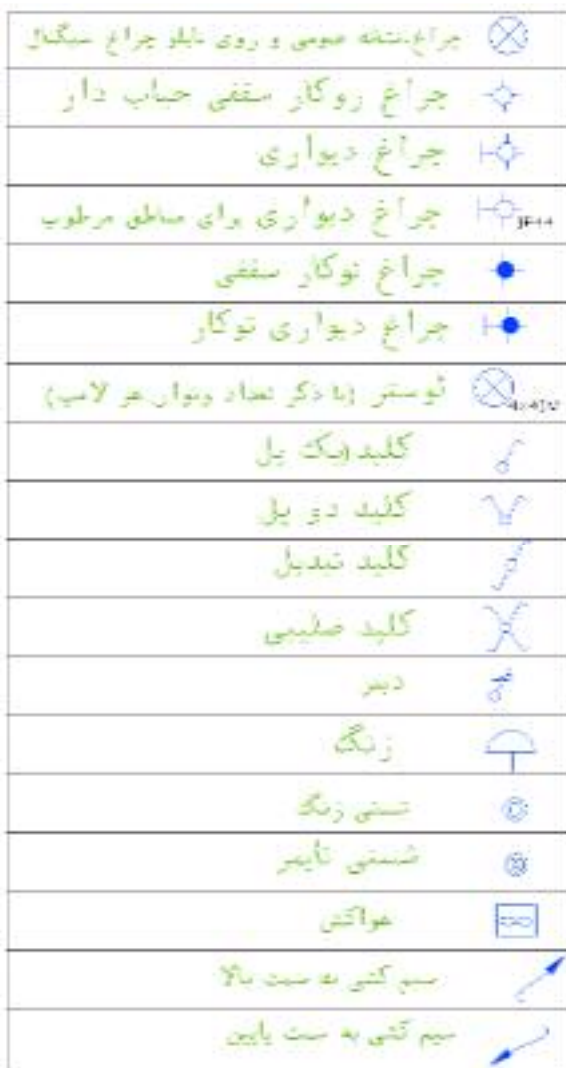 چراغ نقشه عمومی و روی تابلو چراغ سیگنال
چراغ روکار سقفی حباب دار
چراغ دیواری
چراغ دیواری برای مناطق مرطوب
چراغ توکار سقفی
چراغ دیواری توکار
لوستر (با ذکر تعداد وتوان هر لامپ)
کلید یک پل
کلید دو پل
کلید تبدیل
کلید صلیبی
دیمر
زنگ
شستی زنگ
شستی تایمر
هواکش
سیم کشی به سمت بالا
سیم کشی به سمت پایین